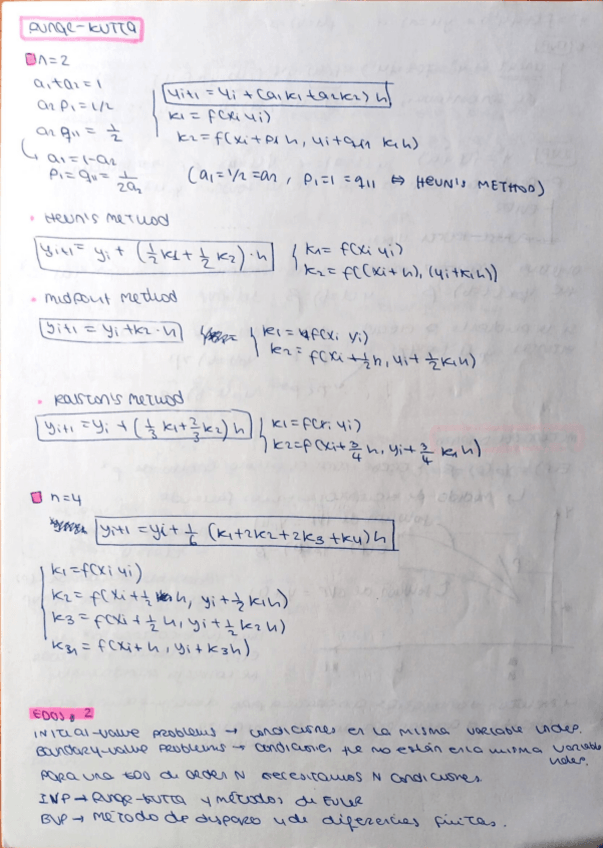 RUNGE-KUTTA
n=2
a1+a2=1
a2 p1=1/2
a2 q11 = 1/2
a1=1-a2
p1=q11= 1/2a2
yi+1 = yi + (a1 k1 + a2 k2) h
k1 = f(xi yi)
k2 = f(xi+p1 h, yi+q11 k1 h)
(a1=1/2=a2, p1=1=q11 ⇔ HEUN'S METHOD)
• HEUN'S METHOD
yi+1 = yi + (1/2 k1 + 1/2 k2)·h
k1= f(xi yi)
k2= f((xi+h), (yi+k1h))
• MIDPOINT METHOD
yi+1 = yi + k2·h
k1 = f(xi yi)
k2 = f(xi + 1/2 h, yi + 1/2 k1h)
• RALSTON'S METHOD
yi+1 = yi + (1/3 k1 + 2/3 k2) h
k1=f(xi yi)
k2=f(xi+ 3/4 h, yi+ 3/4 k1 h)
n=4
yi+1 = yi + 1/6 (k1+2k2+2k3+k4) h
k1=f(xi yi)
k2= f(xi+ 1/2 h, yi+ 1/2 k1h)
k3= f(xi + 1/2 h, yi + 1/2 k2 h)
k4 = f(xi+h, yi+k3h)
EDOS 2
INITIAL-VALUE PROBLEMS → CONDICIONES EN LA MISMA VARIABLE INDEP.
BOUNDARY-VALUE PROBLEMS → CONDICIONES QUE NO ESTÁN EN LA MISMA VARIABLE
INDEP.
PARA UNA EDO DE ORDEN N NECESITAMOS N CONDICIONES
IVP → RUNGE-KUTTA Y MÉTODOS DE EULER
BVP → MÉTODO DE DISPARO Y DE DIFERENCIAS FINITAS.